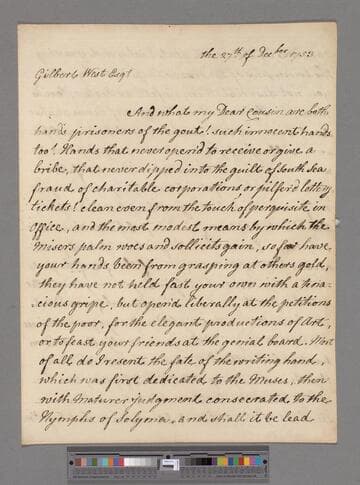 the 27th of Decbr 1753
Gilbert West Esqr
And what my Dear Cousin are both
hands prisoners of the gout! such innocent hands
too! Hands that never open'd to receive or give a
bribe, that never dipped into the guilt of South Sea
fraud of charitable corporations or pilfer'd lottery
tickets! clean even from the touch of perquisite in
office, and the most modest means by which the
Misers palm woes and sollicits gain, so far have
your hands been from grasping at others gold,
they have not held fast your own with a tena=
cious gripe, but open'd liberally at the petitions
of the poor, for the elegant productions of Art,
or to feast your friends at the genial board. Most
of all do I resent the fate of the writing hand,
which was first dedicated to the Muses, then
with maturer judgment consecrated to the
Nymphs of Solyma, and shall it be lead